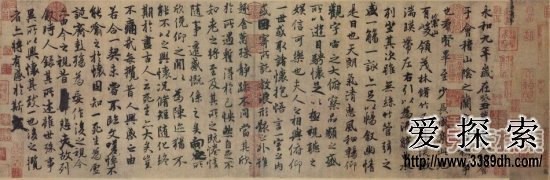 永和九年歲在癸丑暮春之初會
于會稽山陰之蘭亭脩禊事
也羣賢畢至少長咸集此地
有崇山峻領茂林脩竹又有清流激
湍暎帶左右引以為流觴曲水
列坐其次雖無絲竹管弦之
盛一觴一詠亦足以暢敘幽情
是日也天朗氣清惠風和暢仰
觀宇宙之大俯察品類之盛
所以遊目騁懷足以極視聽之
娛信可樂也夫人之相與俯仰
一世或取諸懷抱悟言一室之內
或因寄所託放浪形骸之外雖
趣舍萬殊靜躁不同當其欣
於所遇蹔得於己怏然自足不
知老之將至及其所之既惓情
隨事遷感慨係之矣向之所
欣俛仰之閒以為陳迹猶不
能不以之興懷況脩短隨化終
期於盡古人云死生亦大矣豈
不痛哉每攬昔人興感之由
若合一契未嘗不臨文嗟悼不
能喻之於懷固知一死生為虛
誕齊彭殤為妄作後之視今
亦由今之視昔悲夫故列
敘時人錄其所述雖世殊事
異所以興懷其致一也後之攬
者亦將有感於斯文
爱探索
www.3389dh.com